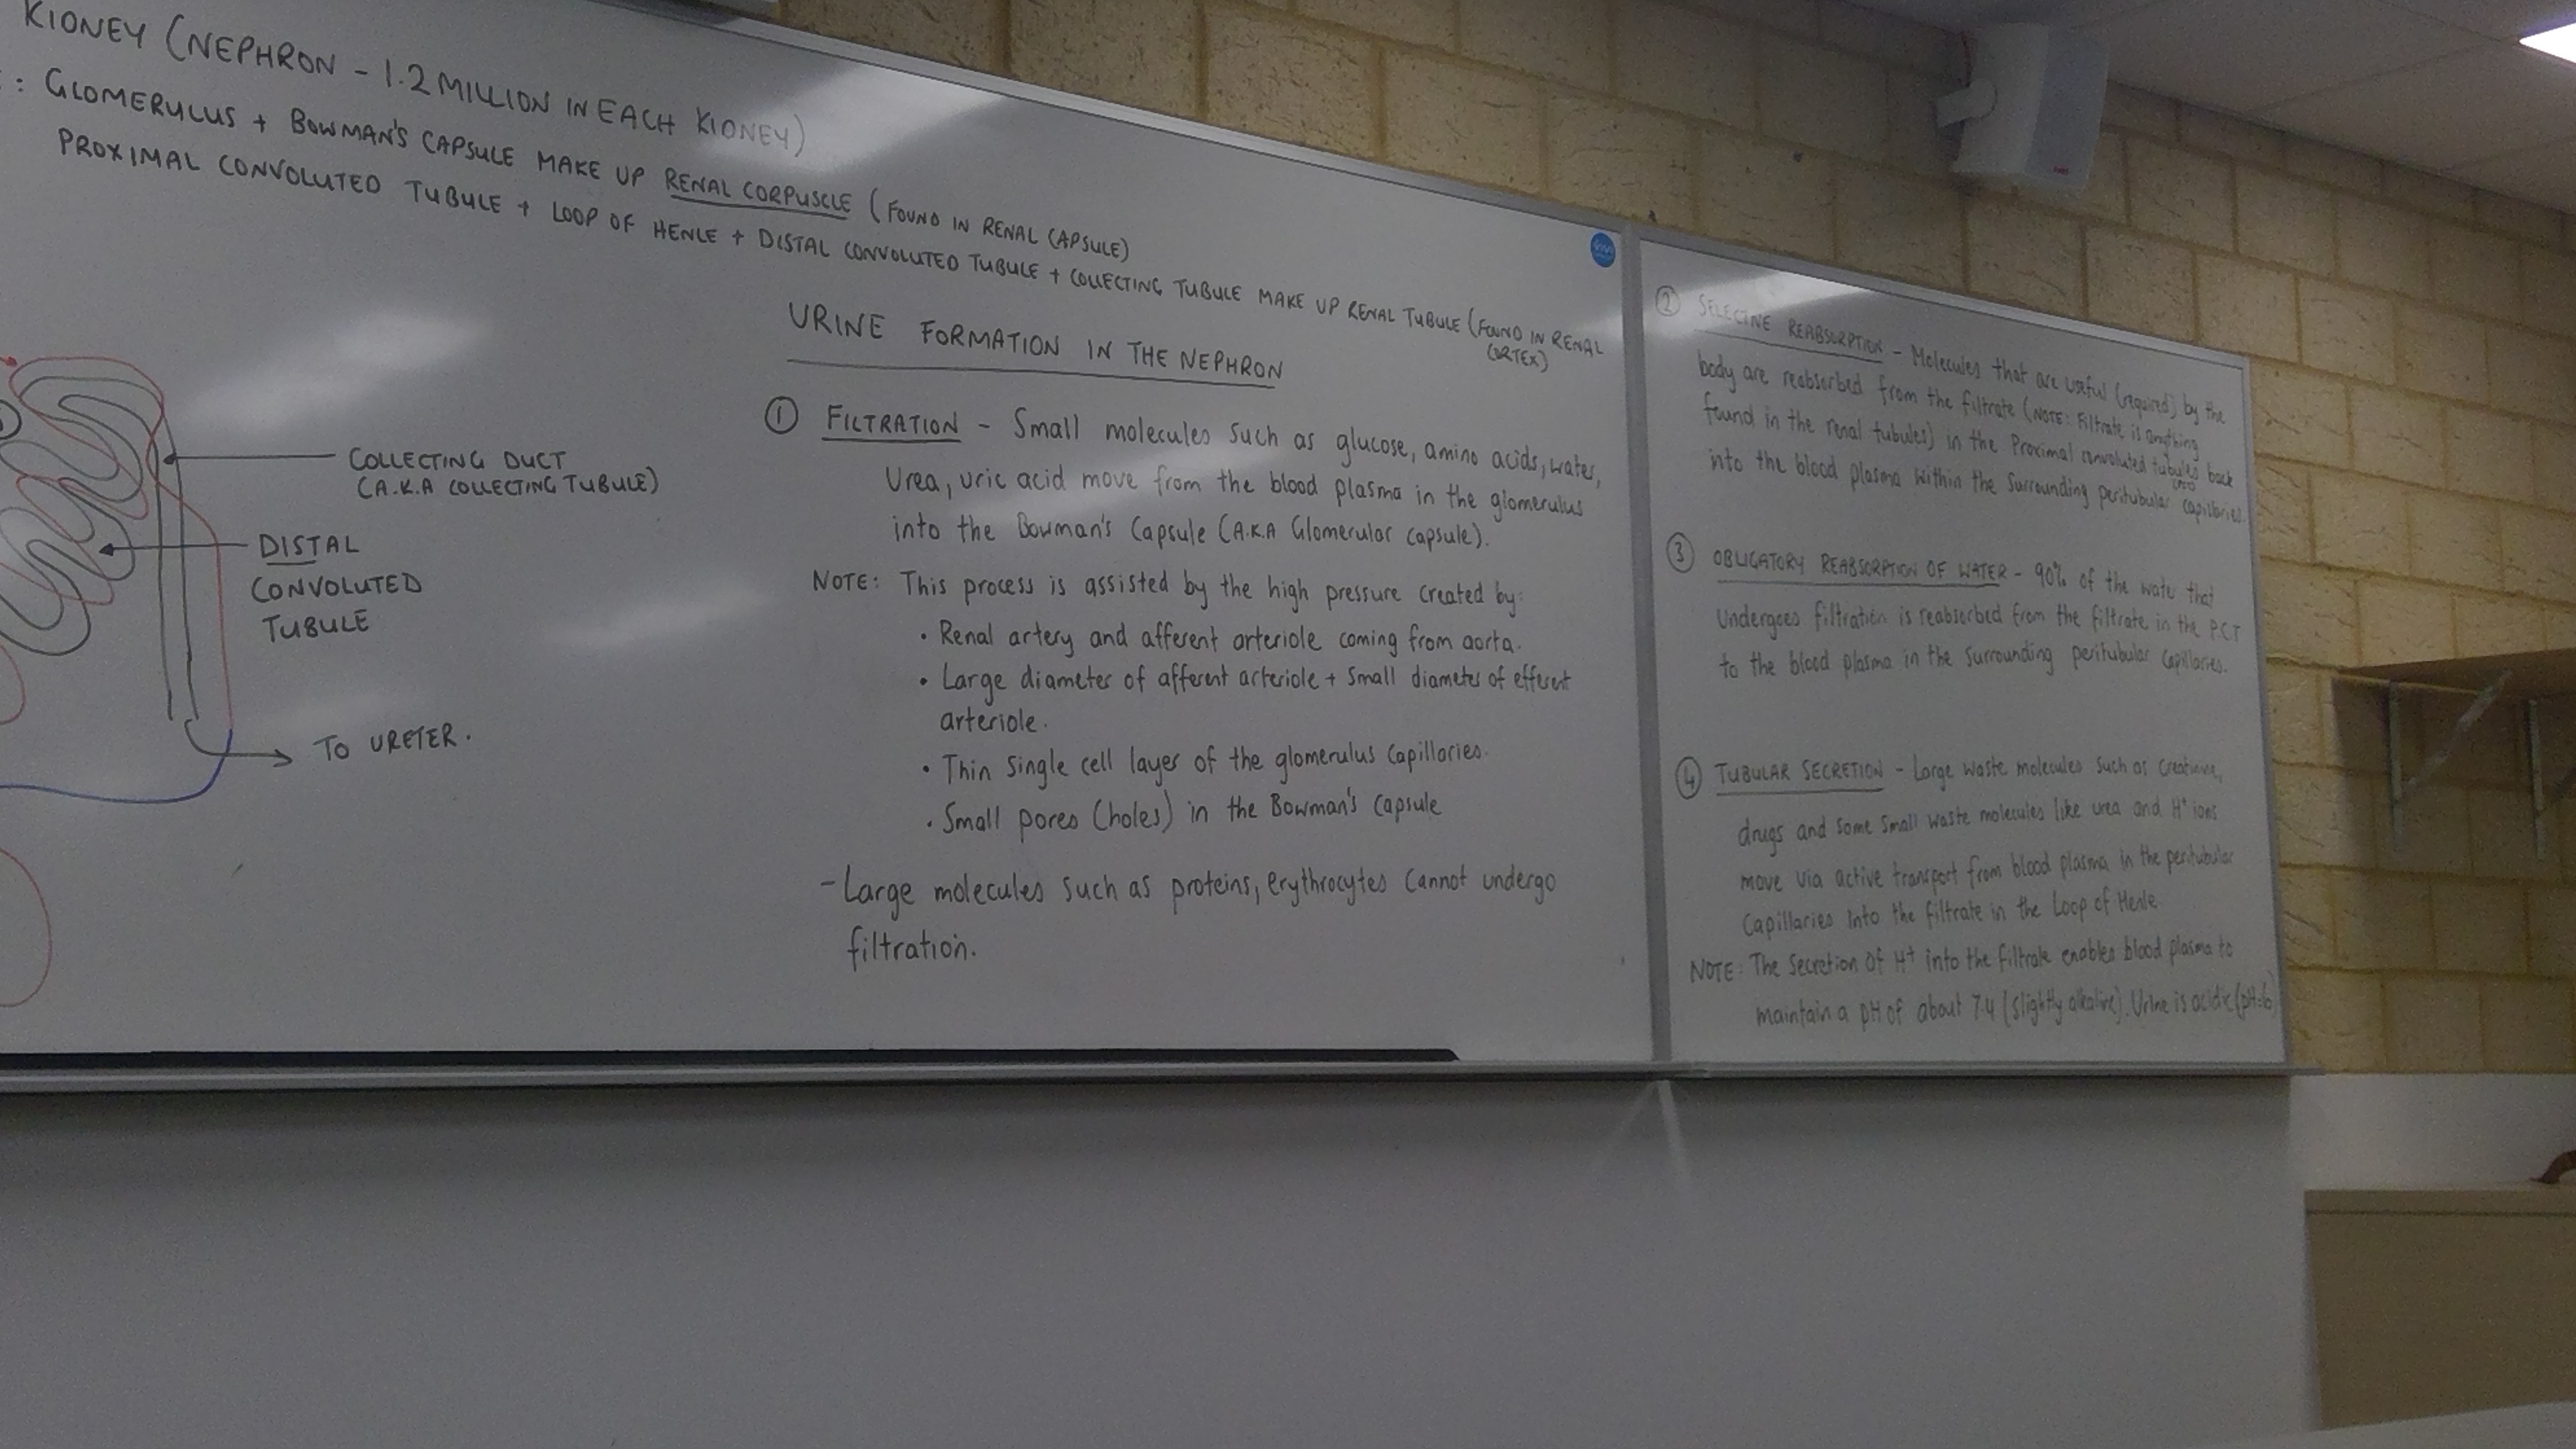 KIDNEY (NEPHRON - 1.2 MILLION IN EACH KIDNEY)
: GLOMERULUS + BOWMAN'S CAPSULE MAKE UP RENAL CORPUSCLE (FOUND IN RENAL CAPSULE)
PROXIMAL CONVOLUTED TUBULE + LOOP OF HENLE + DISTAL CONVOLUTED TUBULE + COLLECTING TUBULE MAKE UP RENAL TUBULE (FOUND IN RENAL
CORTEX)
COLLECTING DUCT
(A.K.A COLLECTING TUBULE)
DISTAL
CONVOLUTED
TUBULE
TO URETER.
URINE FORMATION IN THE NEPHRON
① FILTRATION - Small molecules such as glucose, amino acids, water,
Urea, uric acid move from the blood plasma in the glomerulus
into the Bowman's Capsule (A.K.A Glomerular capsule).
NOTE: This process is assisted by the high pressure created by:
• Renal artery and afferent arteriole coming from aorta.
• Large diameter of afferent arteriole + small diameter of efferent
arteriole.
• Thin single cell layer of the glomerulus capillaries.
• Small pores (holes) in the Bowman's capsule
- Large molecules such as proteins, erythrocytes cannot undergo
filtration.
② SELECTIVE REABSORPTION - Molecules that are useful (required) by the
body are reabsorbed from the filtrate (NOTE: Filtrate is anything
found in the renal tubules) in the Proximal convoluted tubules back
into the blood plasma within the surrounding peritubular capillaries.
③ OBLIGATORY REABSORPTION OF WATER - 90% of the water that
undergoes filtration is reabsorbed from the filtrate in the P.C.T
to the blood plasma in the surrounding peritubular capillaries.
④ TUBULAR SECRETION - Large waste molecules such as creatinine,
drugs and some small waste molecules like urea and H⁺ ions
move via active transport from blood plasma in the peritubular
Capillaries into the filtrate in the Loop of Henle.
NOTE: The secretion of H⁺ into the filtrate enables blood plasma to
maintain a pH of about 7.4 (slightly alkaline). Urine is acidic (pH=6)